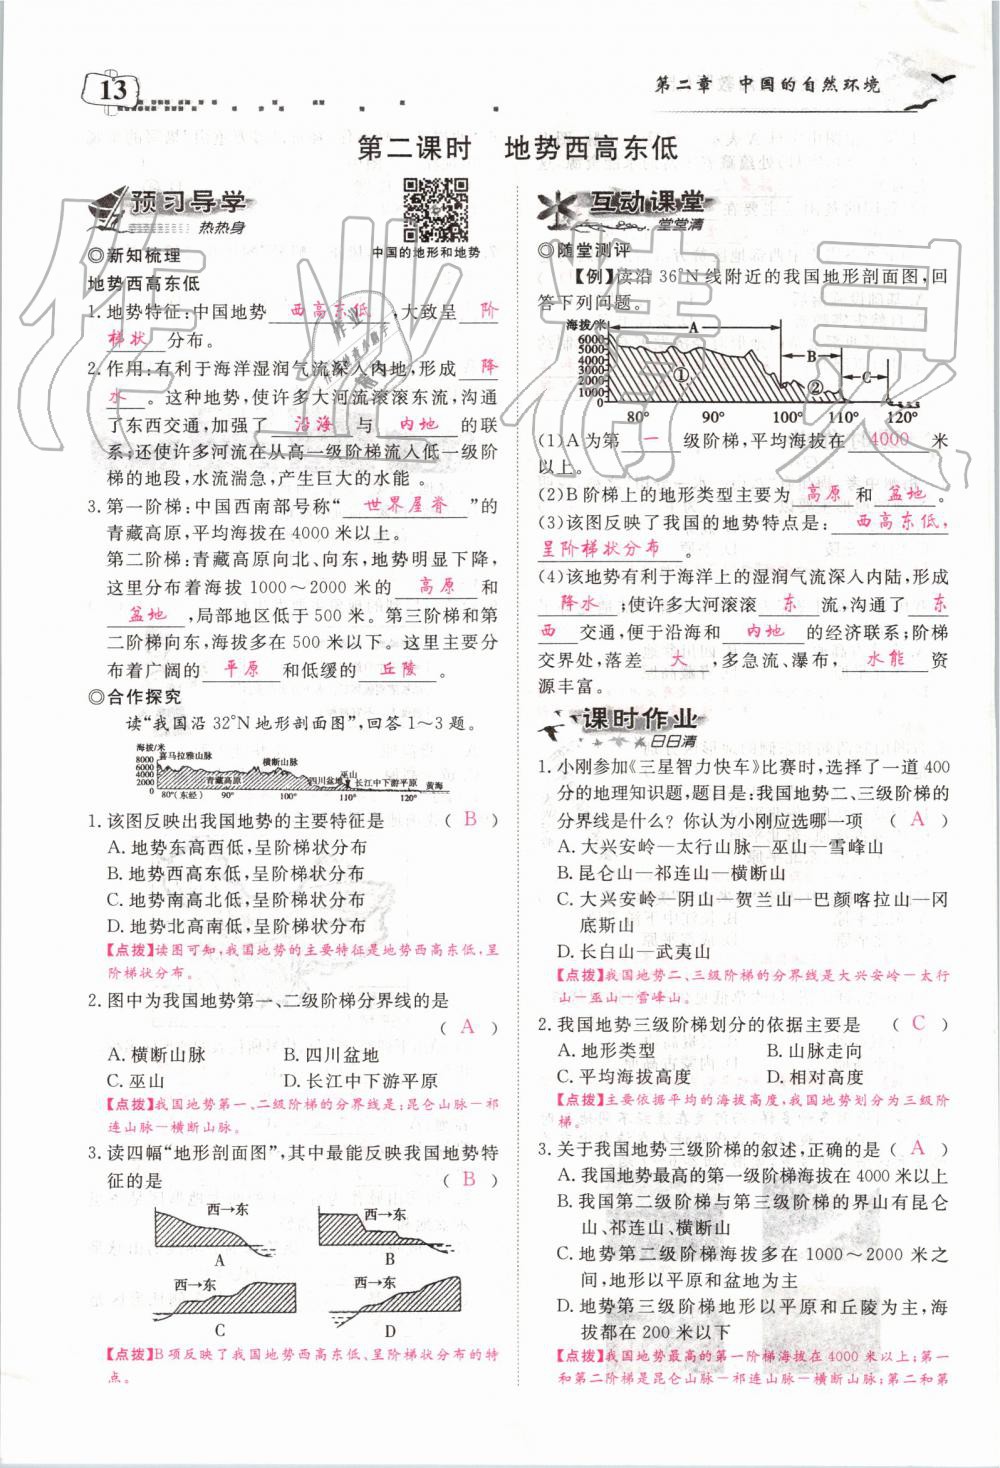 13
第二章 中国的自然环境
第二课时 地势西高东低
预习导学
热热身
中国的地形和地势
◎新知梳理
地势西高东低
1. 地势特征:中国地势 西高东低 ,大致呈 阶
梯状 分布。
2. 作用:有利于海洋湿润气流深入内地,形成 降
水 。这种地势,使许多大河流滚滚东流,沟通
了东西交通,加强了 沿海 与 内地 的联
系;还使许多河流在从高一级阶梯流入低一级阶
梯的地段,水流湍急,产生巨大的水能 。
3. 第一阶梯:中国西南部号称“ 世界屋脊 ”的
青藏高原,平均海拔在4000米以上。
第二阶梯:青藏高原向北、向东,地势明显下降,
这里分布着海拔1000～2000米的 高原 和
盆地 ,局部地区低于500米。第三阶梯和第
二阶梯向东,海拔多在500米以下。这里主要分
布着广阔的 平原 和低缓的 丘陵 。
◎合作探究
读“我国沿32°N地形剖面图”,回答1～3题。
海拔/米
8000
6000
4000
2000
0
喜马拉雅山脉
横断山脉
青藏高原
四川盆地
巫山
长江中下游平原
黄海
80°(东经) 90° 100° 110° 120°
1. 该图反映出我国地势的主要特征是 ( B )
A. 地势东高西低,呈阶梯状分布
B. 地势西高东低,呈阶梯状分布
C. 地势南高北低,呈阶梯状分布
D. 地势北高南低,呈阶梯状分布
【点拨】读图可知,我国地势的主要特征是地势西高东低,呈
阶梯状分布。
2. 图中为我国地势第一、二级阶梯分界线的是
( A )
A. 横断山脉 B. 四川盆地
C. 巫山 D. 长江中下游平原
【点拨】我国地势第一、二级阶梯的分界线是:昆仑山脉－祁
连山脉－横断山脉。
3. 读四幅“地形剖面图”,其中最能反映我国地势特
征的是 ( B )
西→东 西→东
A B
西→东 西→东
C D
【点拨】B项反映了我国地势西高东低、呈阶梯状分布的特
点。
互动课堂
堂堂清
◎随堂测评
【例】读沿36°N线附近的我国地形剖面图,回
答下列问题。
海拔/米
6000
5000
4000
3000
2000
1000
0
A
B
C
①
②
80° 90° 100° 110° 120°
(1)A为第 一 级阶梯,平均海拔在 4000 米
以上。
(2)B阶梯上的地形类型主要为 高原 和 盆地 。
(3)该图反映了我国的地势特点是: 西高东低,
呈阶梯状分布 。
(4)该地势有利于海洋上的湿润气流深入内陆,形成
降水 ;使许多大河滚滚 东 流,沟通了 东
西 交通,便于沿海和 内地 的经济联系;阶梯
交界处,落差 大 ,多急流、瀑布, 水能 资
源丰富。
课时作业
日日清
1. 小刚参加《三星智力快车》比赛时,选择了一道400
分的地理知识题,题目是:我国地势二、三级阶梯的
分界线是什么?你认为小刚应选哪一项 ( A )
A. 大兴安岭—太行山脉—巫山—雪峰山
B. 昆仑山—祁连山—横断山
C. 大兴安岭—阴山—贺兰山—巴颜喀拉山—冈
底斯山
D. 长白山—武夷山
【点拨】我国地势二、三级阶梯的分界线是大兴安岭－太行
山－巫山－雪峰山。
2. 我国地势三级阶梯划分的依据主要是 ( C )
A. 地形类型 B. 山脉走向
C. 平均海拔高度 D. 相对高度
【点拨】主要依据平均的海拔高度,我国地势划分为三级阶
梯。
3. 关于我国地势三级阶梯的叙述,正确的是 ( A )
A. 我国地势最高的第一级阶梯海拔在4000米以上
B. 我国第二级阶梯与第三级阶梯的界山有昆仑
山、祁连山、横断山
C. 地势第二级阶梯海拔多在1000～2000米之
间,地形以平原和盆地为主
D. 地势第三级阶梯地形以平原和丘陵为主,海
拔都在200米以下
【点拨】我国地势最高的第一阶梯海拔在4000米以上;第一
和第二阶梯是昆仑山脉－祁连山脉－横断山脉;第二和第